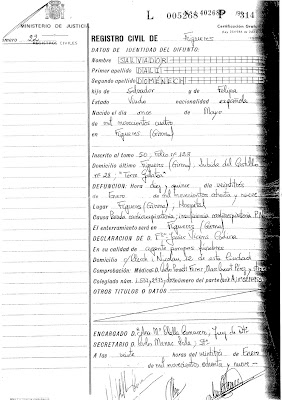 L 005268 N 40268 P 314
MINISTERIO DE JUSTICIA
Certificación
REGISTRO CIVIL DE Figueres
DATOS DE IDENTIDAD DEL DIFUNTO:
Nombre SALVADOR
Primer apellido DALI
Segundo apellido DOMENECH
hijo de Salvador y de Felipa
Estado Viudo nacionalidad española
Nacido el día once de Mayo
de mil novecientos cuatro
en Figueres (Girona)
Inscrito al tomo 50, Folio nº 123
Domicilio último Figueres (Girona), Subida del Castillo
nº 28, "Torre Galatea"
DEFUNCION: Hora diez y quince día veintitrés
de Enero de mil novecientos ochenta y nueve
Lugar Figueres (Girona), Hospital
Causa Parada cardiorespiratoria, insuficiencia cardiorespiratoria
El enterramiento será en Figueres (Girona)
DECLARACION DE D. Javier Vicens
En su calidad de agente pompas fúnebres
Domicilio 12 de esta Ciudad
Comprobación: Médico
Colegiado núm. número del parte
OTROS TITULOS O DATOS
ENCARGADO D. Mª Camarero, Juez de
SECRETARIO
A las veinte horas del veintitrés de Enero
de mil novecientos ochenta y nueve